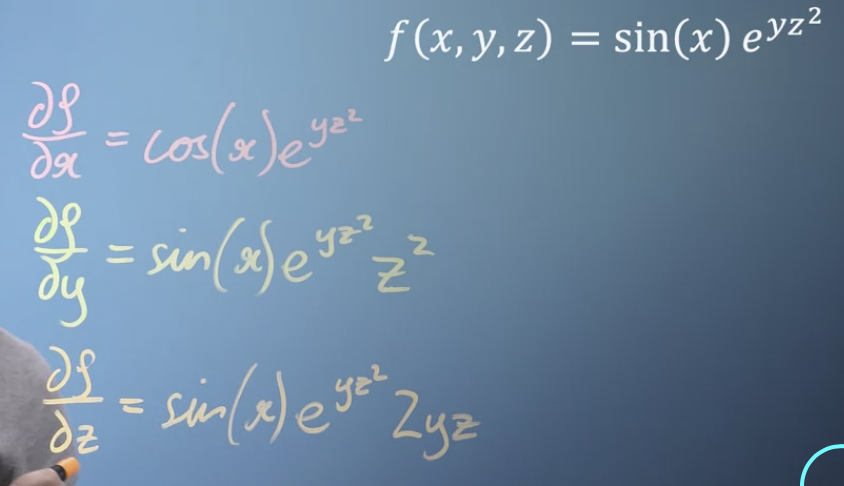 f(x, y, z) = sin(x) e^{yz^2}
∂f/∂x = cos(x)e^{yz^2}
∂f/∂y = sin(x)e^{yz^2} z^2
∂f/∂z = sin(x)e^{yz^2} 2yz